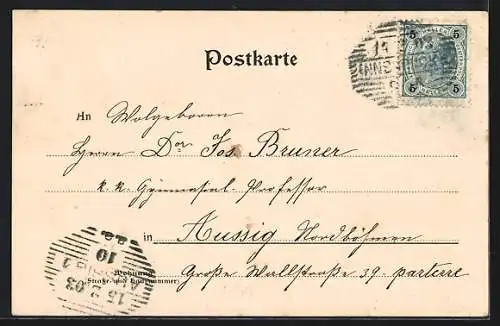 5 5
5 5
INNSBRUCK
Postkarte
An Wolgeboren
Herrn Dor Jos. Bruner
k. k. Gymnasial-Professor
in Aussig Nordböhmen
Große Wallstraße 39. parterre
Wohnung
(Straße und Hausnummer)
15 2 03
10